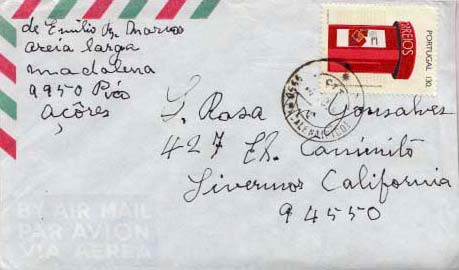 de Emílio R. Marcos
Areia larga
madalena
9950 Pico
Açôres
CORREIOS
PORTUGAL 130
9950
MADALENA (PICO)
S. Rosa Gonsalves
427 El. Caminito
Livermor California
94550
BY AIR MAIL
PAR AVION
VIA AEREA